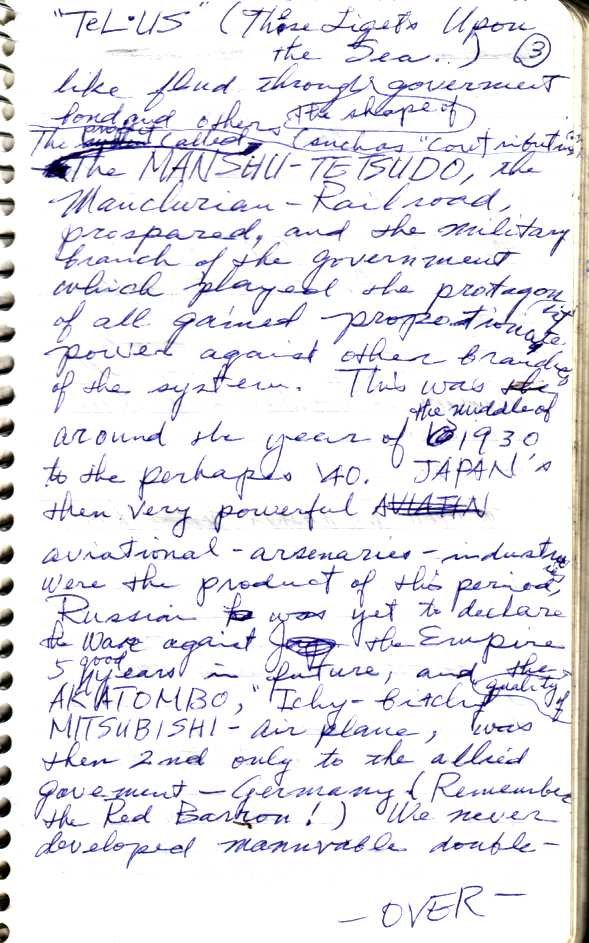 "TeL·US" (Those Ligets Upon
the Sea..) 3
like flud through government
bond and others the shape of
The profit called (such as "Contribution")
The MANSHU-TETSUDO, the
Manchurian-Railroad,
prospared, and the military
branch of the government
which played the protagonist
of all gained propotionate
power against other branches
of the system. This was the
around the year of the middle of 1930
to the perhapes '40. JAPAN's
then very powerful AVIATIN
aviational-arsenaries-industries
were the product of this period,
Russian was yet to declare
the Ware against the Empire
5 good years in future, and the
AKATOMBO, "Ichy-bitchy quality of
MITSUBISHI-air plane, was
then 2nd only to the allied
govement - Germany (Remember
the Red Barron!) We never
developed manuvable double-
- OVER -